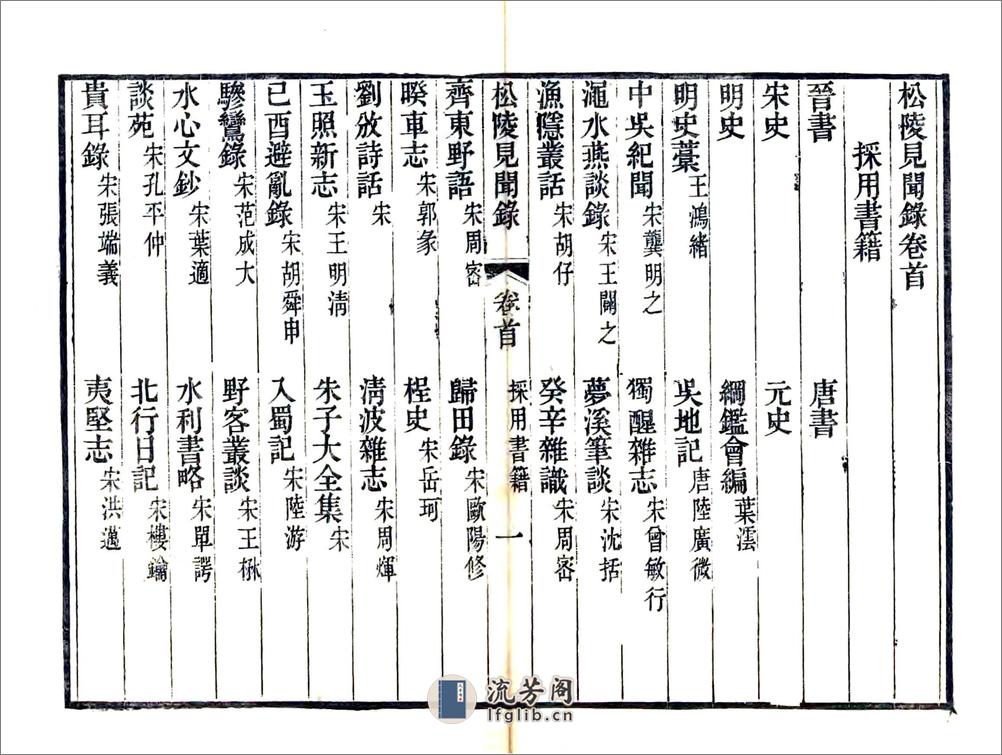 松陵見聞錄卷首
採用書籍
晉書 唐書
宋史 元史
明史 綱鑑會編 葉澐
明史藁 王鴻緒 吳地記 唐陸廣微
中吳紀聞 宋龔明之 獨醒雜志 宋曾敏行
澠水燕談錄 宋王闢之 夢溪筆談 宋沈括
漁隱叢話 宋胡仔 癸辛雜識 宋周密
松陵見聞錄 卷首 採用書籍 一
齊東野語 宋周密 歸田錄 宋歐陽修
暌車志 宋郭彖 桯史 宋岳珂
劉攽詩話 宋 淸波雜志 宋周煇
玉照新志 宋王明淸 朱子大全集 宋
已酉避亂錄 宋胡舜申 入蜀記 宋陸游
驂鸞錄 宋范成大 野客叢談 宋王楙
水心文鈔 宋葉適 水利書略 宋單諤
談苑 宋孔平仲 北行日記 宋樓鑰
貴耳錄 宋張端義 夷堅志 宋洪邁
流芳阁
lfglib.cn